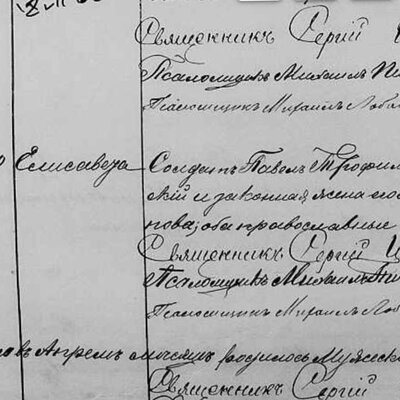 Священникъ Сергій
Псаломщикъ Михаилъ
Псаломщикъ Михаилъ Лоба
Елисавета Солдатъ Павелъ Трофим
кій и законная жена его
пова; оба православные
Священникъ Сергій
Псаломщикъ Михаилъ
Псаломщикъ Михаилъ Лоб
въ Апрелѣ мѣсяцѣ родилось Мужеск
Священникъ Сергій